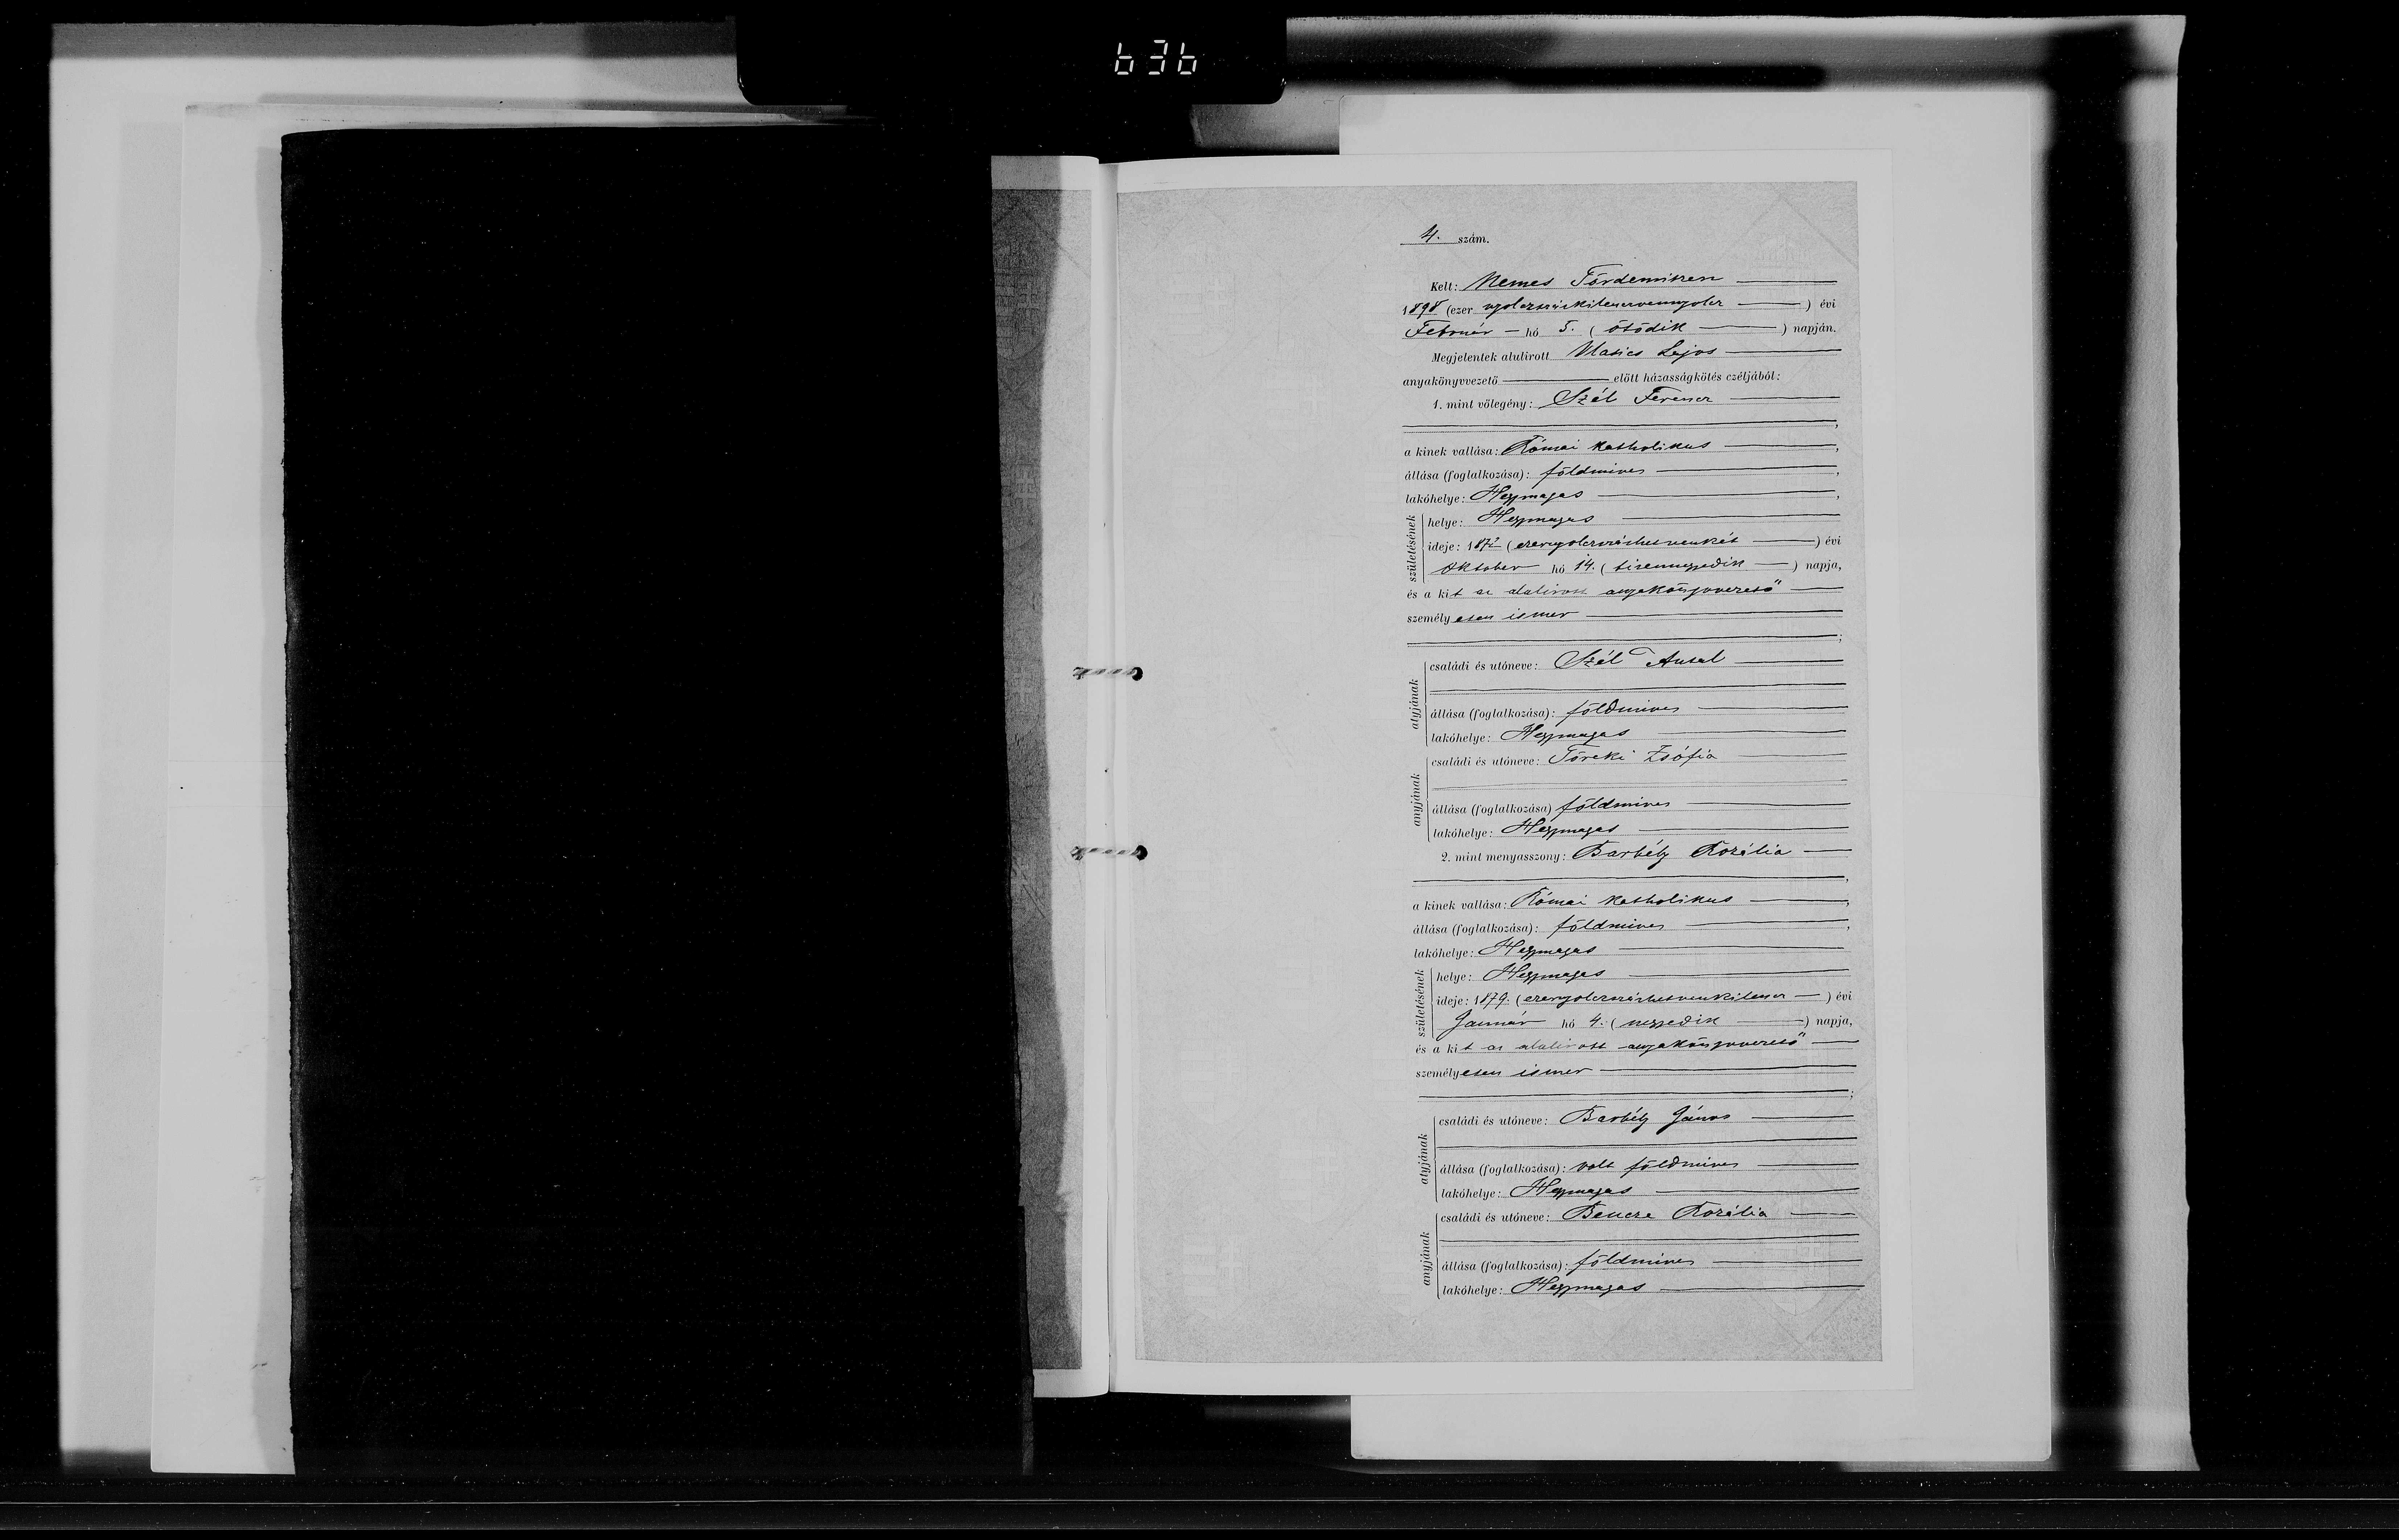 636
4. szám.
Kelt: Nemes Tördemitzen
1898 (ezer nyolczszázkilenczvennyolcz ) évi
Február hó 5. ( ötödik ) napján.
Megjelentek alulirott Vlasics Lajos
anyakönyvvezető előtt házasságkötés czéljából:
1. mint vőlegény: Szél Ferencz
a kinek vallása: Római katholikus ,
állása (foglalkozása): földmives ,
lakóhelye: Hegymagas ,
születésének
helye: Hegymagas
ideje: 1872 (ezernyolczszázhetvenkét ) évi
Oktober hó 14. ( tizennegyedik ) napja,
és a kit az alulirott anyakönyvvezető
személyesen ismer
;
atyjának
családi és utóneve: Szél Antal
állása (foglalkozása): földmives
lakóhelye: Hegymagas
anyjának
családi és utóneve: Töreki Zsófia
állása (foglalkozása) földmives
lakóhelye: Hegymagas
2. mint menyasszony: Barbély Rozália
,
a kinek vallása: Római katholikus ,
állása (foglalkozása): földmives ,
lakóhelye: Hegymagas
születésének
helye: Hegymagas
ideje: 1879. (ezernyolczszázhetvenkilencz ) évi
Január hó 4. ( negyedik ) napja,
és a kit az alulirott anyakönyvvezető
személyesen ismer
;
atyjának
családi és utóneve: Barbély János
állása (foglalkozása): volt földmives
lakóhelye: Hegymagas
anyjának
családi és utóneve: Bencze Rozália
állása (foglalkozása): földmives
lakóhelye: Hegymagas